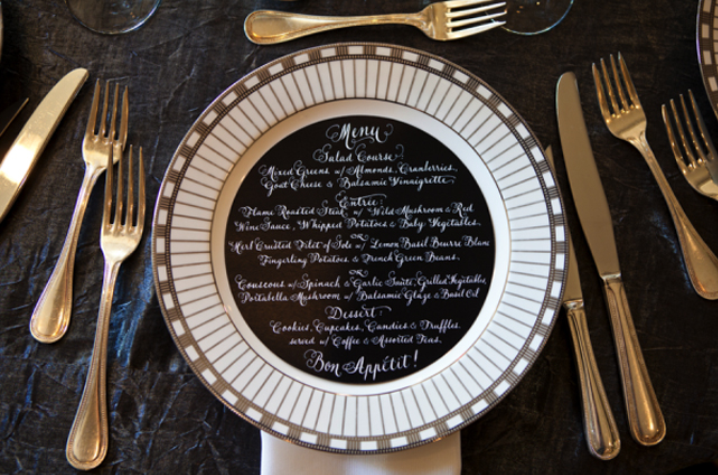 Menu
Salad Course
Mixed Greens w/ Almonds, Cranberries,
Goat Cheese & Balsamic Vinaigrette
Entrée
Flame Roasted Steak w/ Wild Mushroom & Red
Wine Sauce, Whipped Potatoes & Baby Vegetables.
or
Herb Crusted Filet of Sole w/ Lemon Basil Beurre Blanc
Fingerling Potatoes & French Green Beans.
or
Couscous w/ Spinach & Garlic Sauté, Grilled Vegetable
Portabella Mushroom w/ Balsamic Glaze & Basil Oil
Dessert
Cookies, Cupcakes, Candies & Truffles.
served w/ Coffee & Assorted Teas.
Bon Appétit!